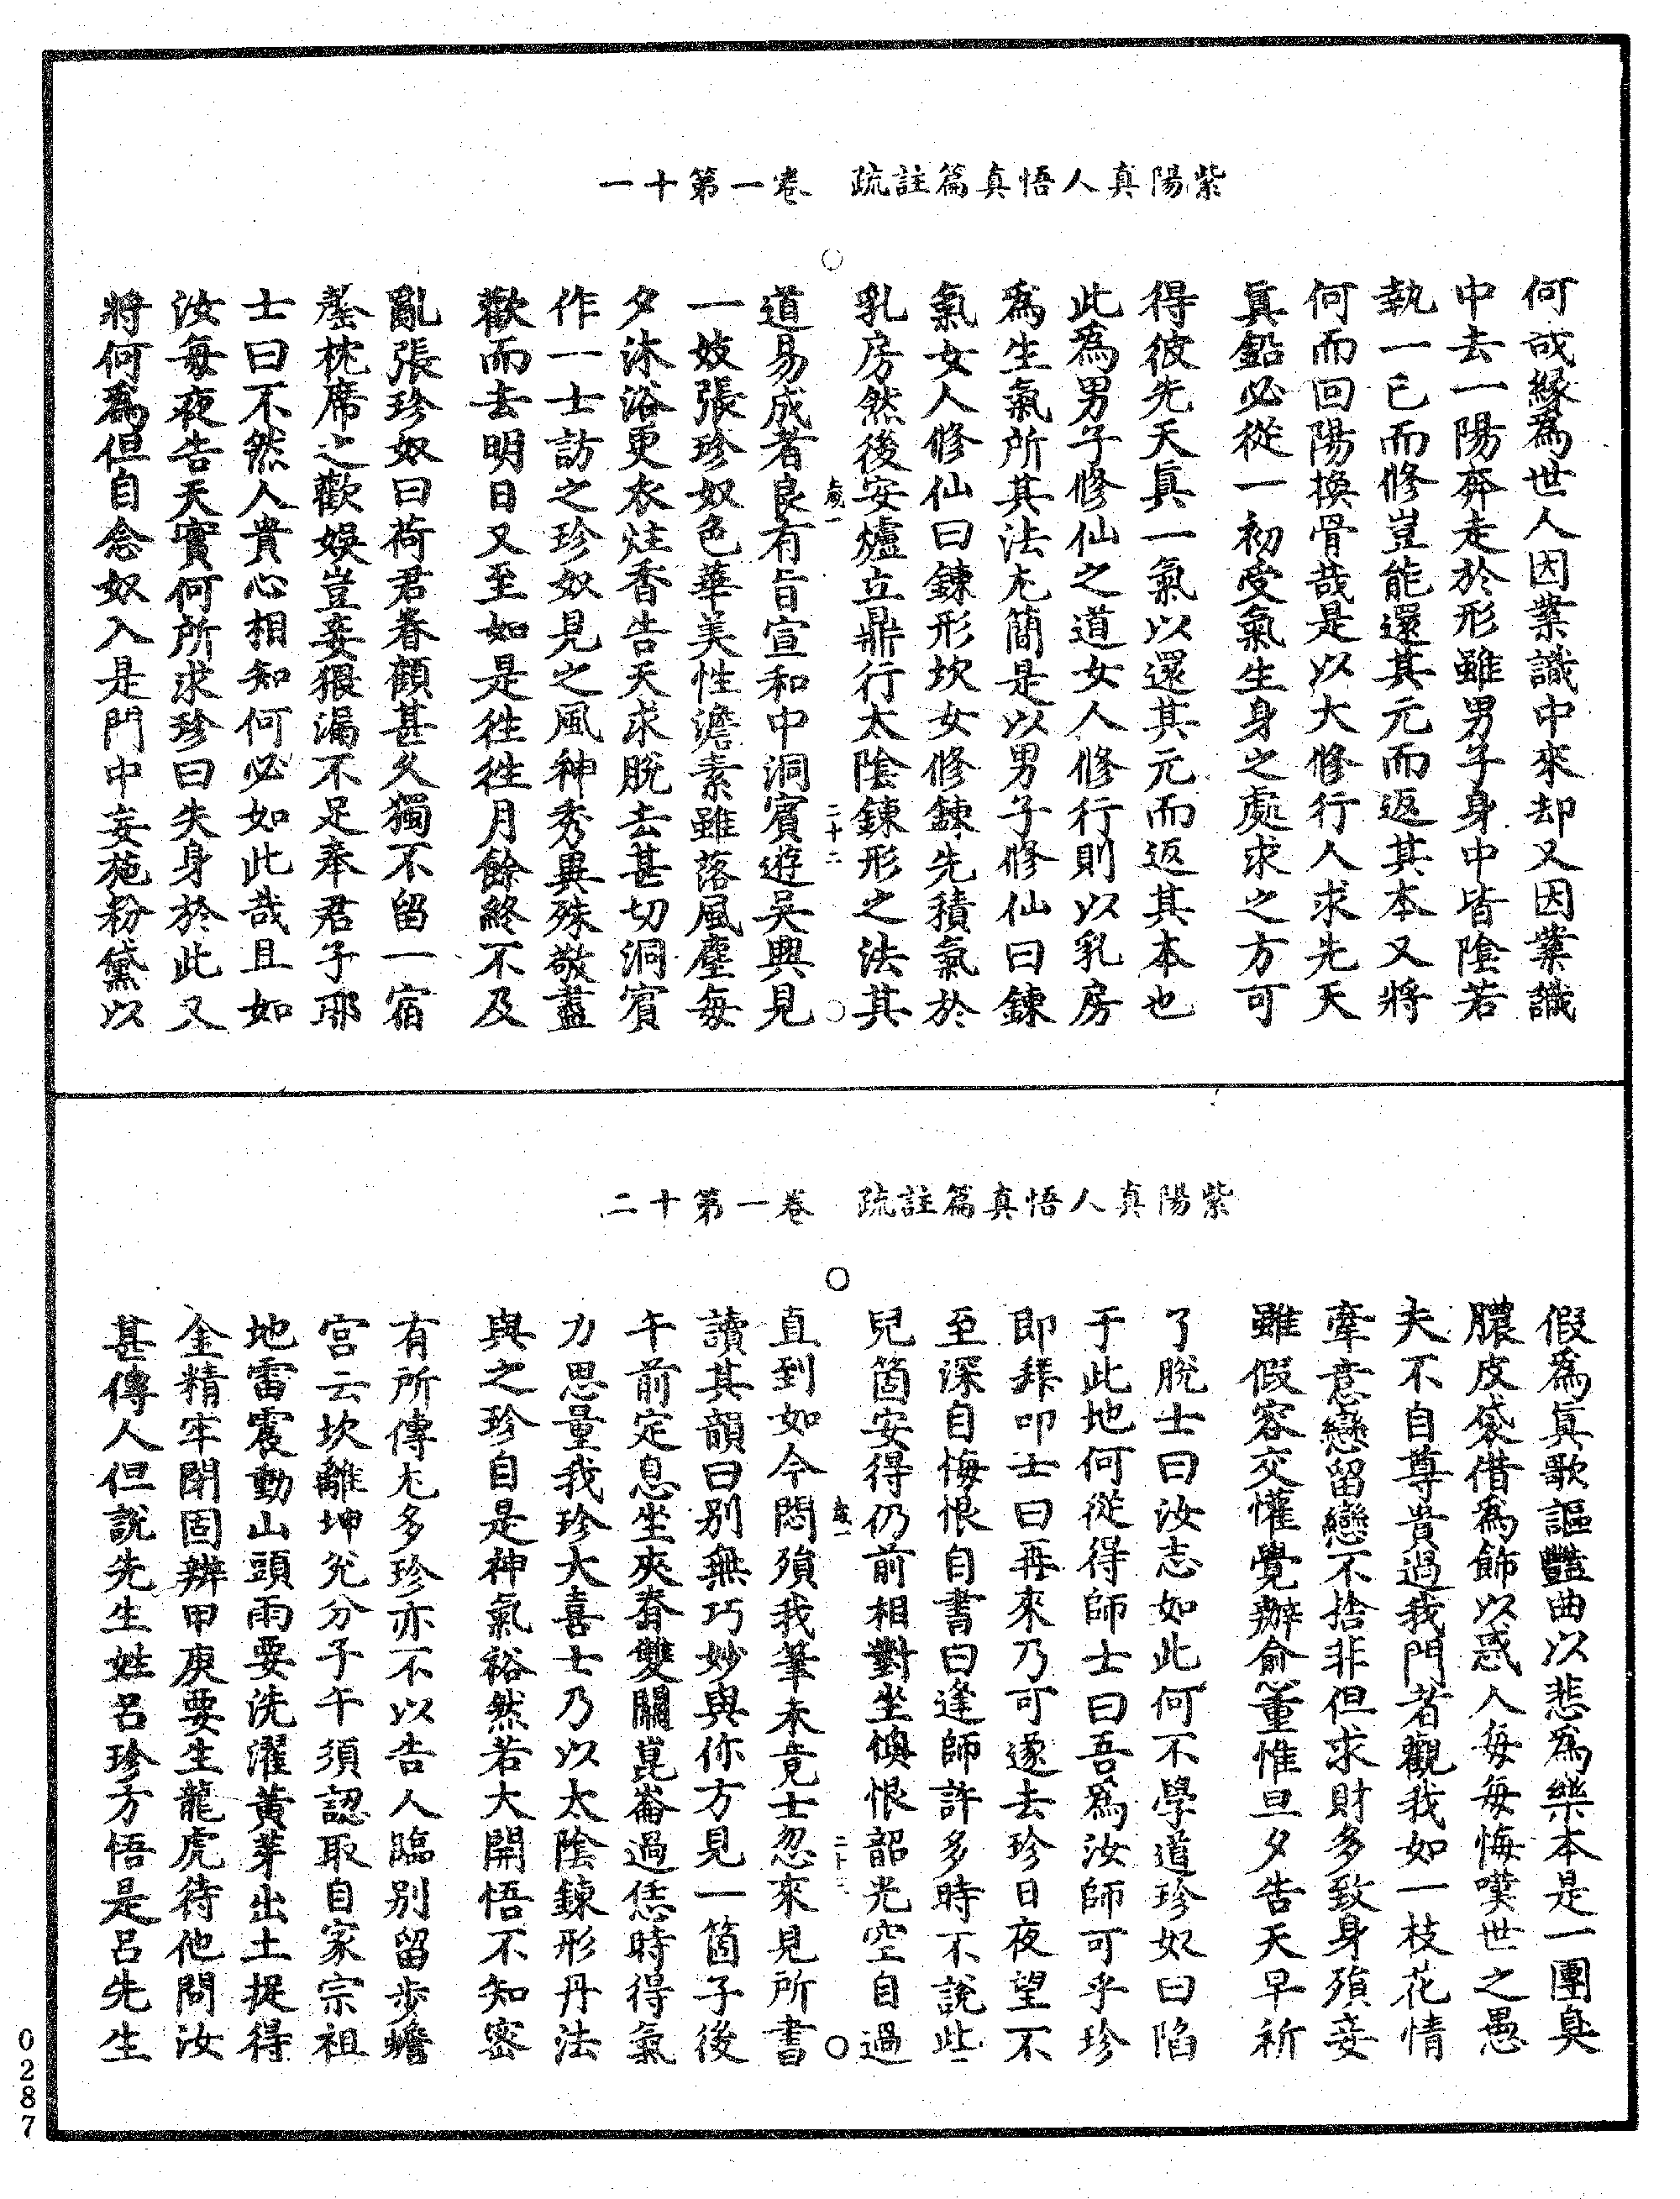 紫陽真人悟真篇註疏　卷一第十一
何哉緣爲世人因業識中來却又因業識
中去一陽奔走於形雖男子身中皆陰若
執一己而修豈能還其元而返其本又將
何而回陽換骨哉是以大修行人求先天
眞鉛必從一初受氣生身之處求之方可
得彼先天眞一氣以還其元而返其本也
此爲男子修仙之道女人修行則以乳房
爲生氣所其法尤簡是以男子修仙曰鍊
氣女人修仙曰鍊形坎女修鍊先積氣於
乳房然後安爐立鼎行太陰鍊形之法其
歲一　二十二
道易成者良有旨宣和中洞賓遊吳興見
一妓張珍奴色華美性澹素雖落風塵每
夕沐浴更衣炷香告天求脫去甚切洞賓
作一士訪之珍奴見之風神秀異殊敬盡
歡而去明日又至如是往往月餘終不及
亂張珍奴曰荷君眷顧甚久獨不留一宿
罄枕席之歡娛豈妾猥漏不足奉君子耶
士曰不然人貴心相知何必如此哉且如
汝每夜告天實何所求珍曰失身於此又
將何爲但自念奴入是門中妄施粉黛以
紫陽真人悟真篇註疏　卷一第十二
假爲眞歌謳豔曲以悲爲樂本是一團臭
膿皮袋借爲飾以惑人每每悔嘆世之愚
夫不自尊貴過我門若觀我如一枝花情
牽意戀留戀不捨非但求財多致身殞妾
雖假容交懽覺辦俞重惟旦夕告天早祈
了脫士曰汝志如此何不學道珍奴曰陷
于此地何從得師士曰吾爲汝師可乎珍
即拜叩士曰再來乃可遂去珍日夜望不
至深自悔恨自書曰逢師許多時不說些
兒箇安得仍前相對坐懊恨韶光空自過
歲一　二十三
直到如今悶殞我筆未竟士忽來見所書
讀其韻曰別無巧妙與你方見一箇子後
午前定息坐夾脊雙關崑崙過恁時得氣
力思量我珍大喜士乃以太陰鍊形丹法
與之珍自是神氣裕然若大開悟不知密
有所傳尤多珍亦不以告人臨別留步蟾
宮云坎離坤兌分子午須認取自家宗祖
地雷震動山頭雨要洗濯黃芽出土捉得
金精牢閉固辨甲庚要生龍虎待他問汝
甚傳人但說先生姓呂珍方悟是呂先生
0287